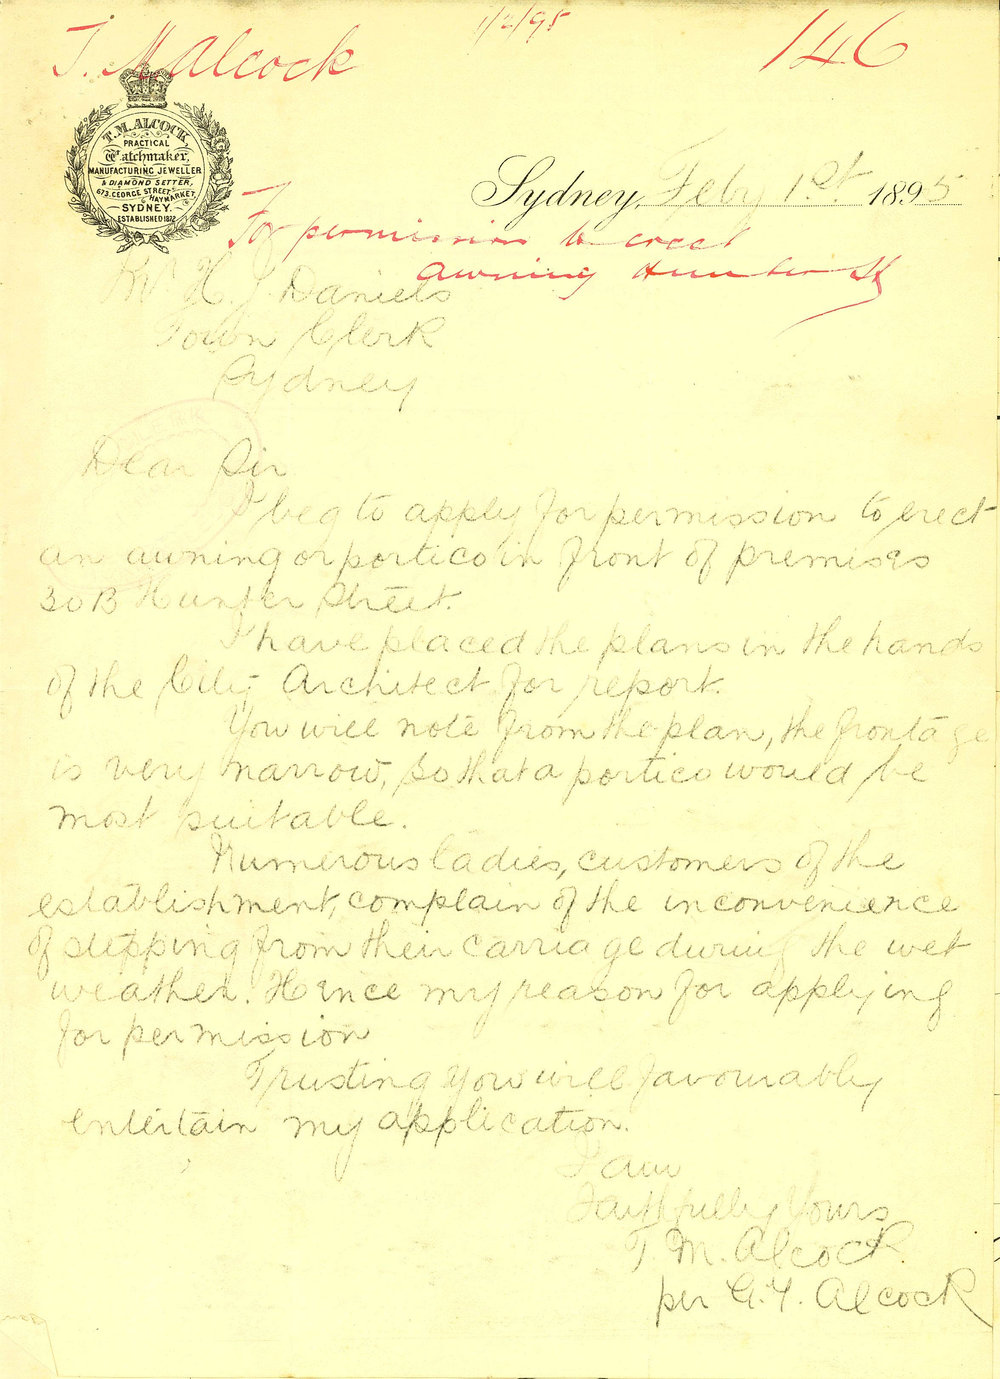 T. M. Alcock
1/2/95
146
T. M. ALCOCK,
PRACTICAL
Watchmaker,
MANUFACTURING JEWELLER
& DIAMOND SETTER,
673, GEORGE STREET,
HAYMARKET,
SYDNEY.
ESTABLISHED 1872
Sydney, Feby 1st 1895
For permission to erect
awning Hunter St
Mr H. J. Daniels
Town Clerk
Sydney
Dear Sir
I beg to apply for permission to erect
an awning or portico in front of premises
30B Hunter Street.
I have placed the plans in the hands
of the City Architect for report.
You will note from the plan, the frontage
is very narrow, so that a portico would be
most suitable.
Numerous ladies, customers of the
establishment, complain of the inconvenience
of stepping from their carriage during the wet
weather. Hence my reason for applying
for permission
Trusting you will favourably
entertain my application.
I am
Faithfully Yours
T. M. Alcock.
per G. F. Alcock